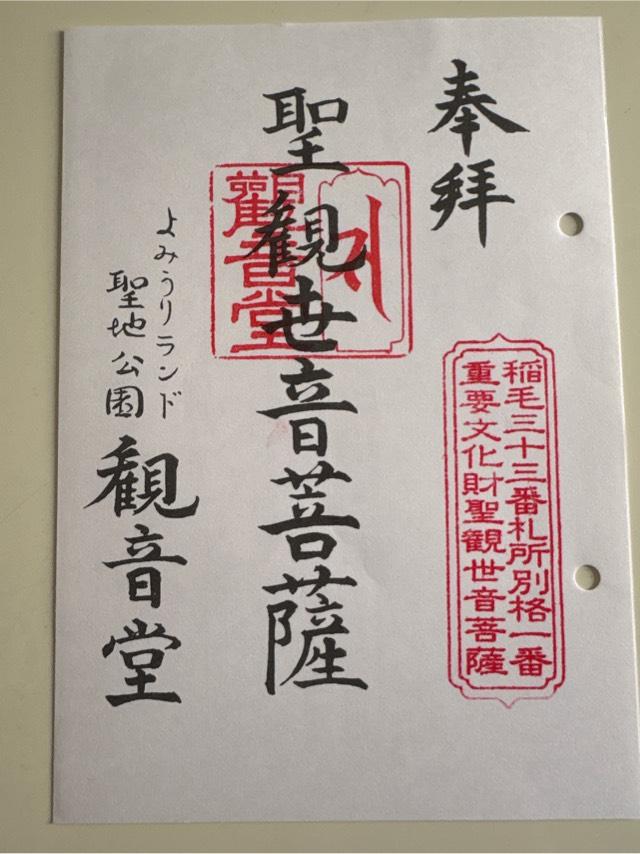 奉拝
稲毛三十三番札所別格一番
重要文化財聖観世音菩薩
聖観世音菩薩
觀音堂
よみうりランド
聖地公園
観音堂